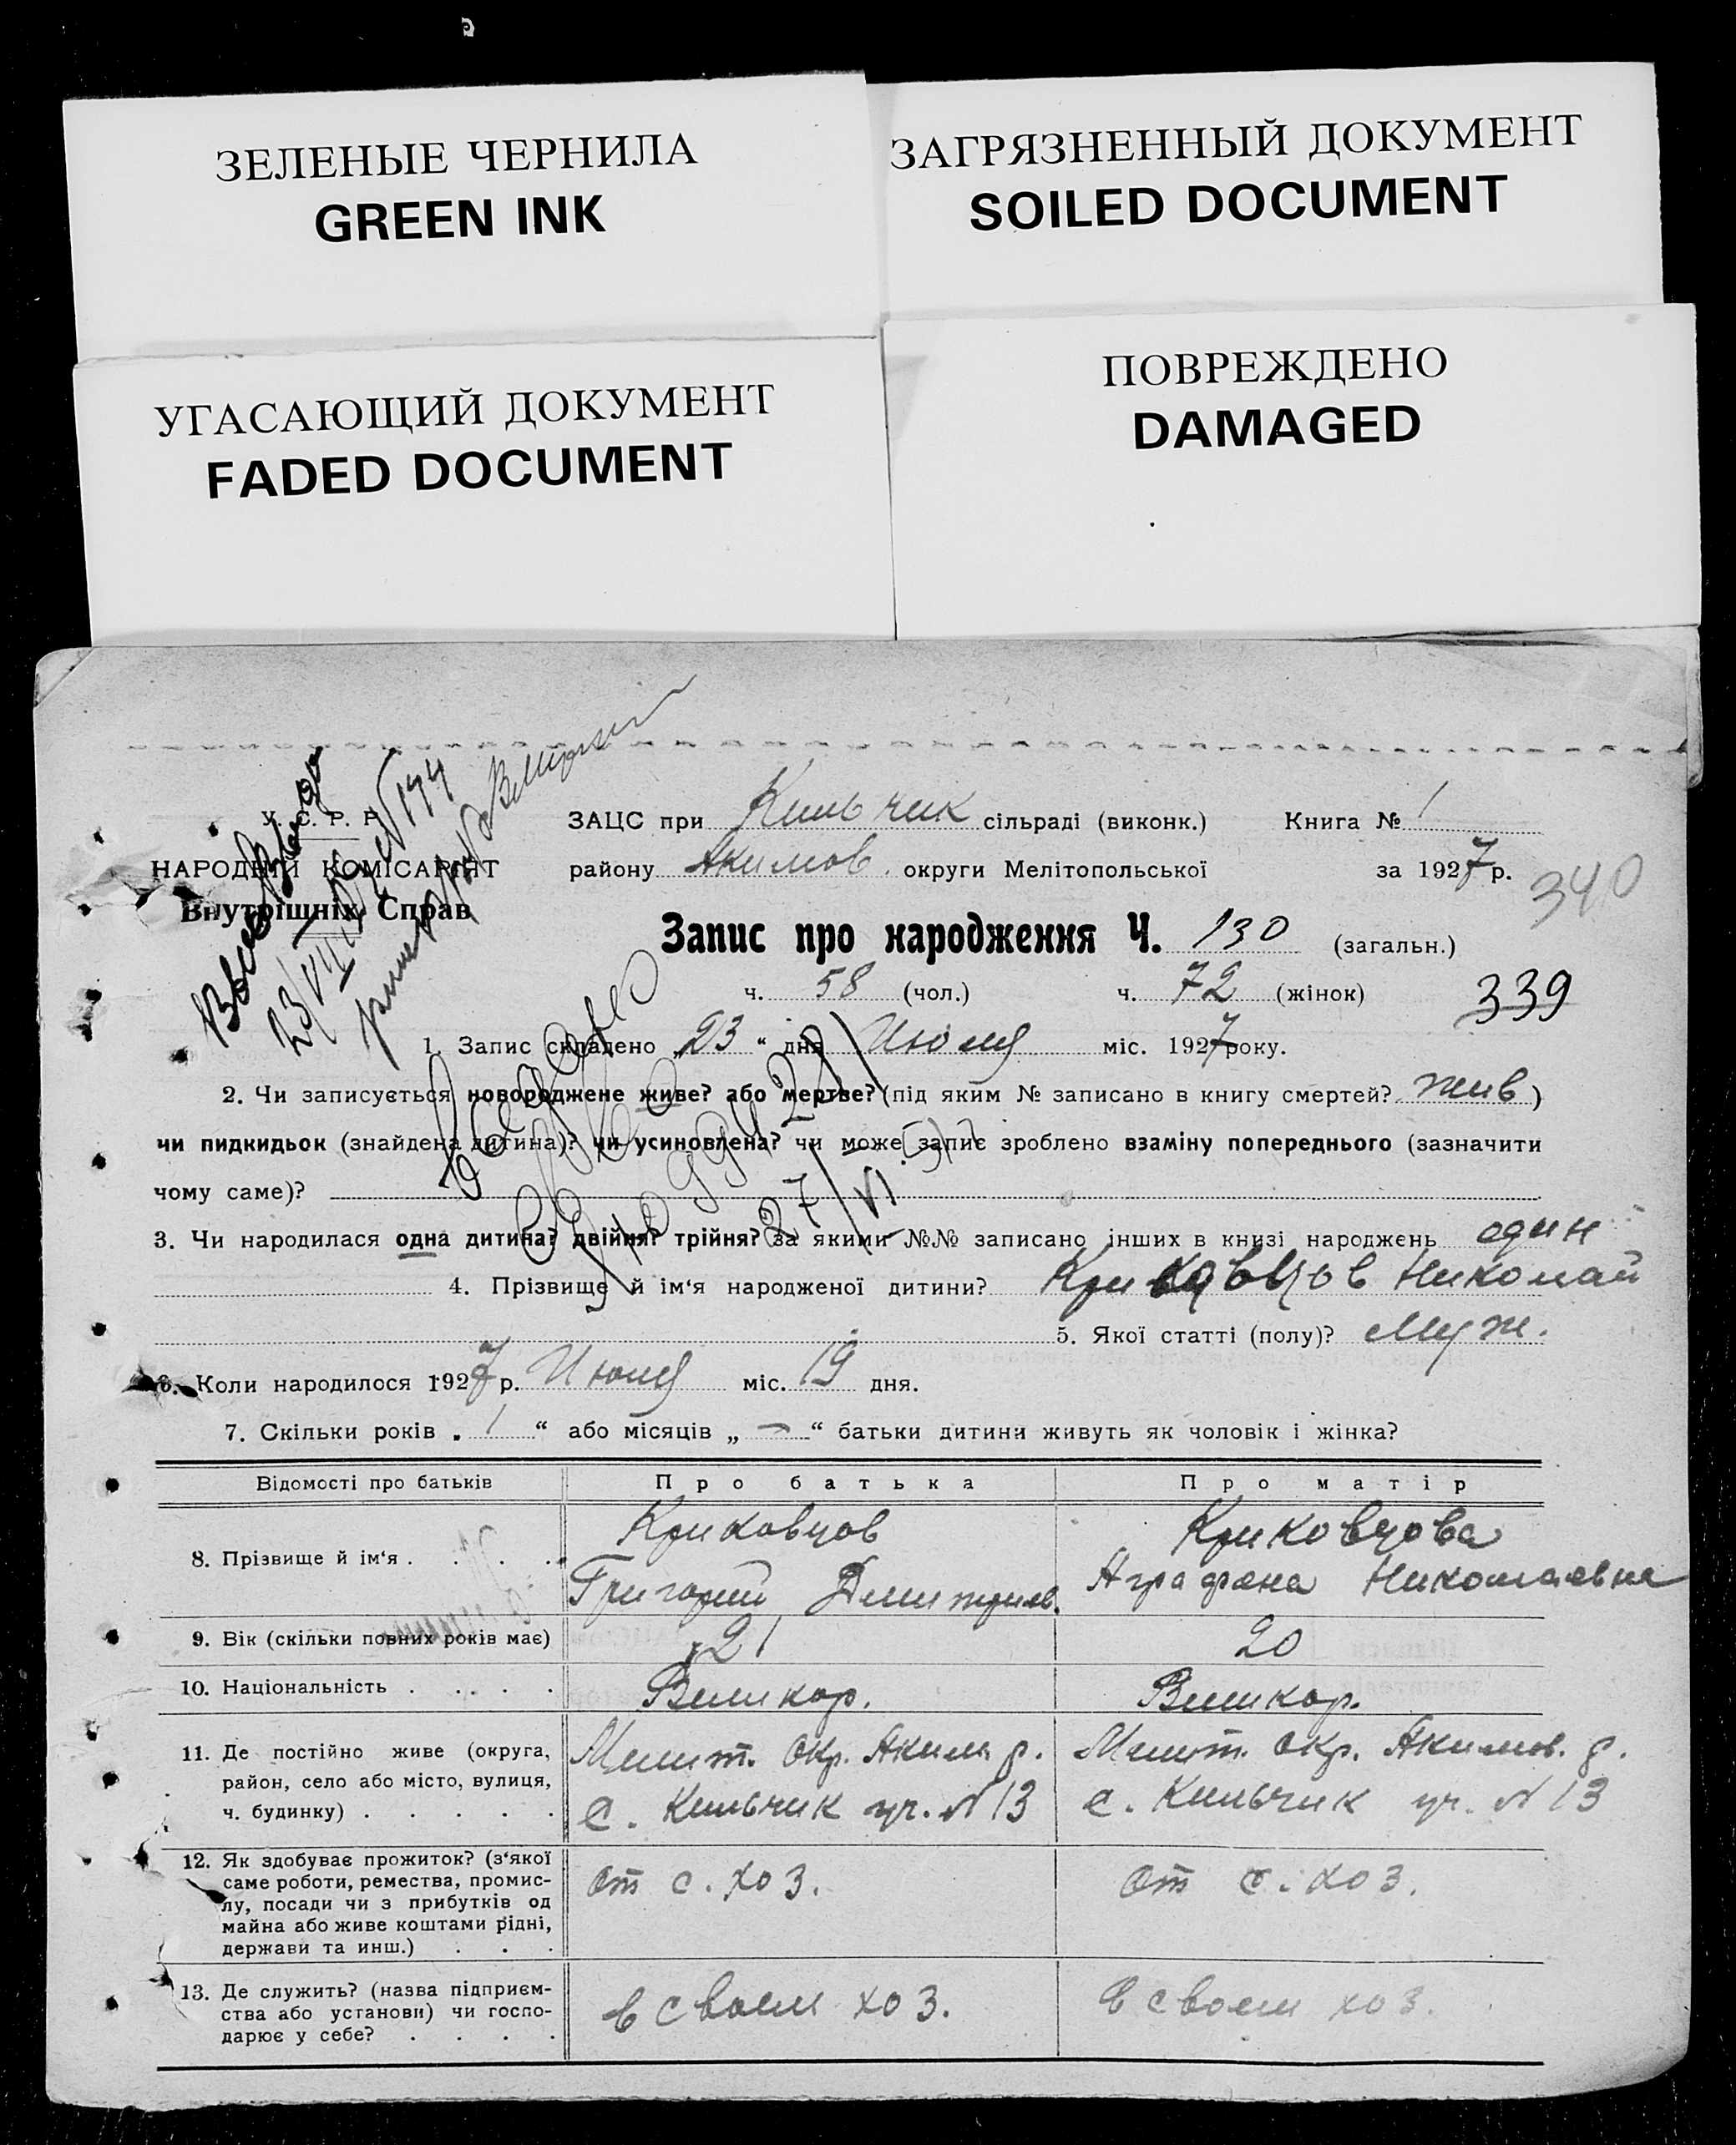 ЗЕЛЕНЫЕ ЧЕРНИЛА
GREEN INK
ЗАГРЯЗНЕННЫЙ ДОКУМЕНТ
SOILED DOCUMENT
УГАСАЮЩИЙ ДОКУМЕНТ
FADED DOCUMENT
ПОВРЕЖДЕНО
DAMAGED
У. С. Р. Р.
НАРОДНІЙ КОМІСАРІЯТ
Внутрішніх Справ
ЗАЦС при Кильчик сільраді (виконк.) Книга № 1
району Акимов. округи Мелітопольської за 1927 р.
340
Запис про народження Ч. 130 (загальн.)
ч. 58 (чол.) ч. 72 (жінок)
339
1. Запис складено „23“ дня Июля міс. 1927 року.
2. Чи записується новороджене живе? або мертве? (під яким № записано в книгу смертей? жив)
чи пидкидьок (знайдена дитина)? чи усиновлена? чи може запис зроблено взаміну попереднього (зазначити
чому саме)?
3. Чи народилася одна дитина? двійня? трійня? за якими №№ записано інших в книзі народжень один
4. Прізвище й ім‘я народженої дитини? Криковцов Николай
5. Якої статті (полу)? Муж.
6. Коли народилося 1927 р. Июля міс. 19 дня.
7. Скільки років „1“ або місяців „—“ батьки дитини живуть як чоловік і жінка?
Відомості про батьків Про батька Про матір
8. Прізвище й ім‘я . . . . Криковцов Криковцова
Григорий Дмитриев. Аграфена Николаевна
9. Вік (скільки повних років має) 21 20
10. Національність . . . . Великор. Великор.
11. Де постійно живе (округа, Мелит. Окр. Аким. р. Мелит. Окр. Акимов. р.
район, село або місто, вулиця, с. Кильчик уч. № 13 с. Кильчик уч. № 13
ч. будинку) . . . . .
12. Як здобуває прожиток? (з‘якої От с. хоз. От с. хоз.
саме роботи, ремества, промис-
лу, посади чи з прибутків од
майна або живе коштами рідні,
держави та инш.) . . .
13. Де служить? (назва підприєм- в своем хоз. в своем хоз.
ства або установи) чи госпо-
дарює у себе? . . . .